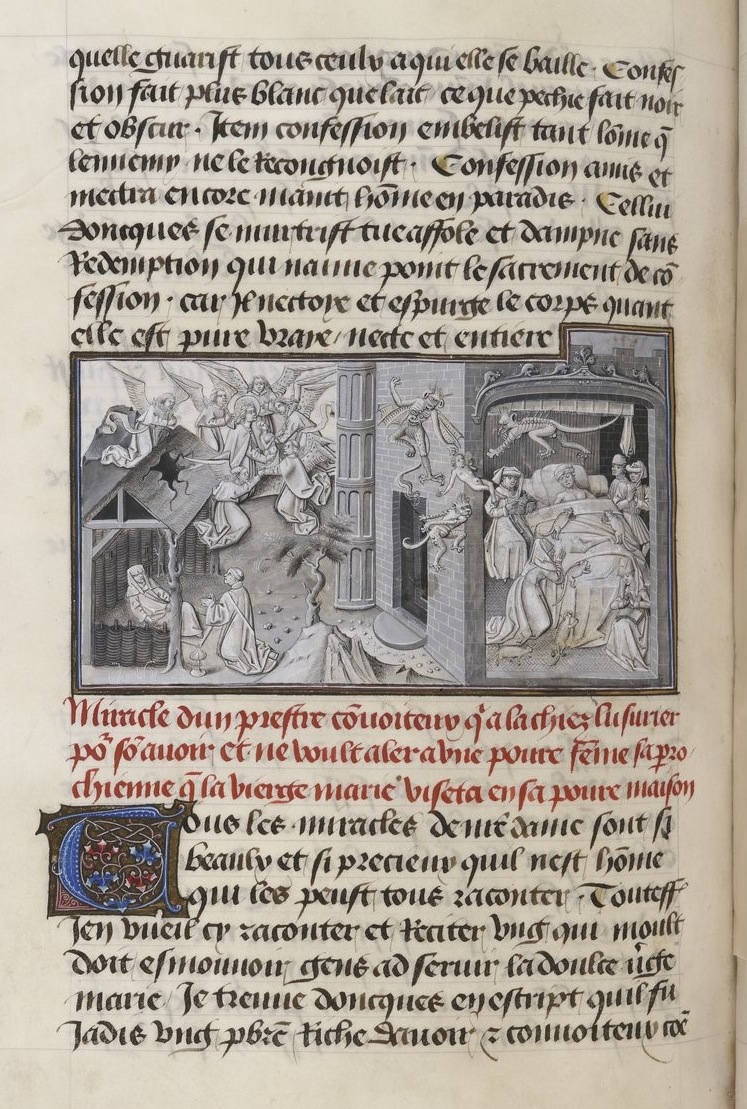 quelle guarist tous ceulx a qui elle se baille. Confes
sion fait plus blanc que lait ce que pechie fait noir
et obscur. Item confession embelist tant lōme q̄
lennemy ne le recongnoist. Confession a mis et
mectra encore maint hōme en paradis. Cellui
doncques se murtrist tue affole et dampne sans
redemption qui naime point le sacrement de cō
fession. car Il nectoye et espurge le corps quant
elle est pure vraye necte et entiere
Miracle dun prestre cōvoiteux q̄ ala chiez lusurier
po² so avoir et ne voult aler a une povre fēme sa pro
chienne q̄ la vierge marie viseta en sa povre maison
Tous les miracles de nr̄e dame sont si
beaulx et si precieux quil nest hōme
qui les peust tous raconter. Touteff
Jen vueil cy raconter et reciter vng qui moult
doit esmouvoir gens ad servir la doulce v̄ge
marie Je treuve doncques en escript quil fu
Jadis vng pbr̄e riche davoir ⁊ convoiteux cōe